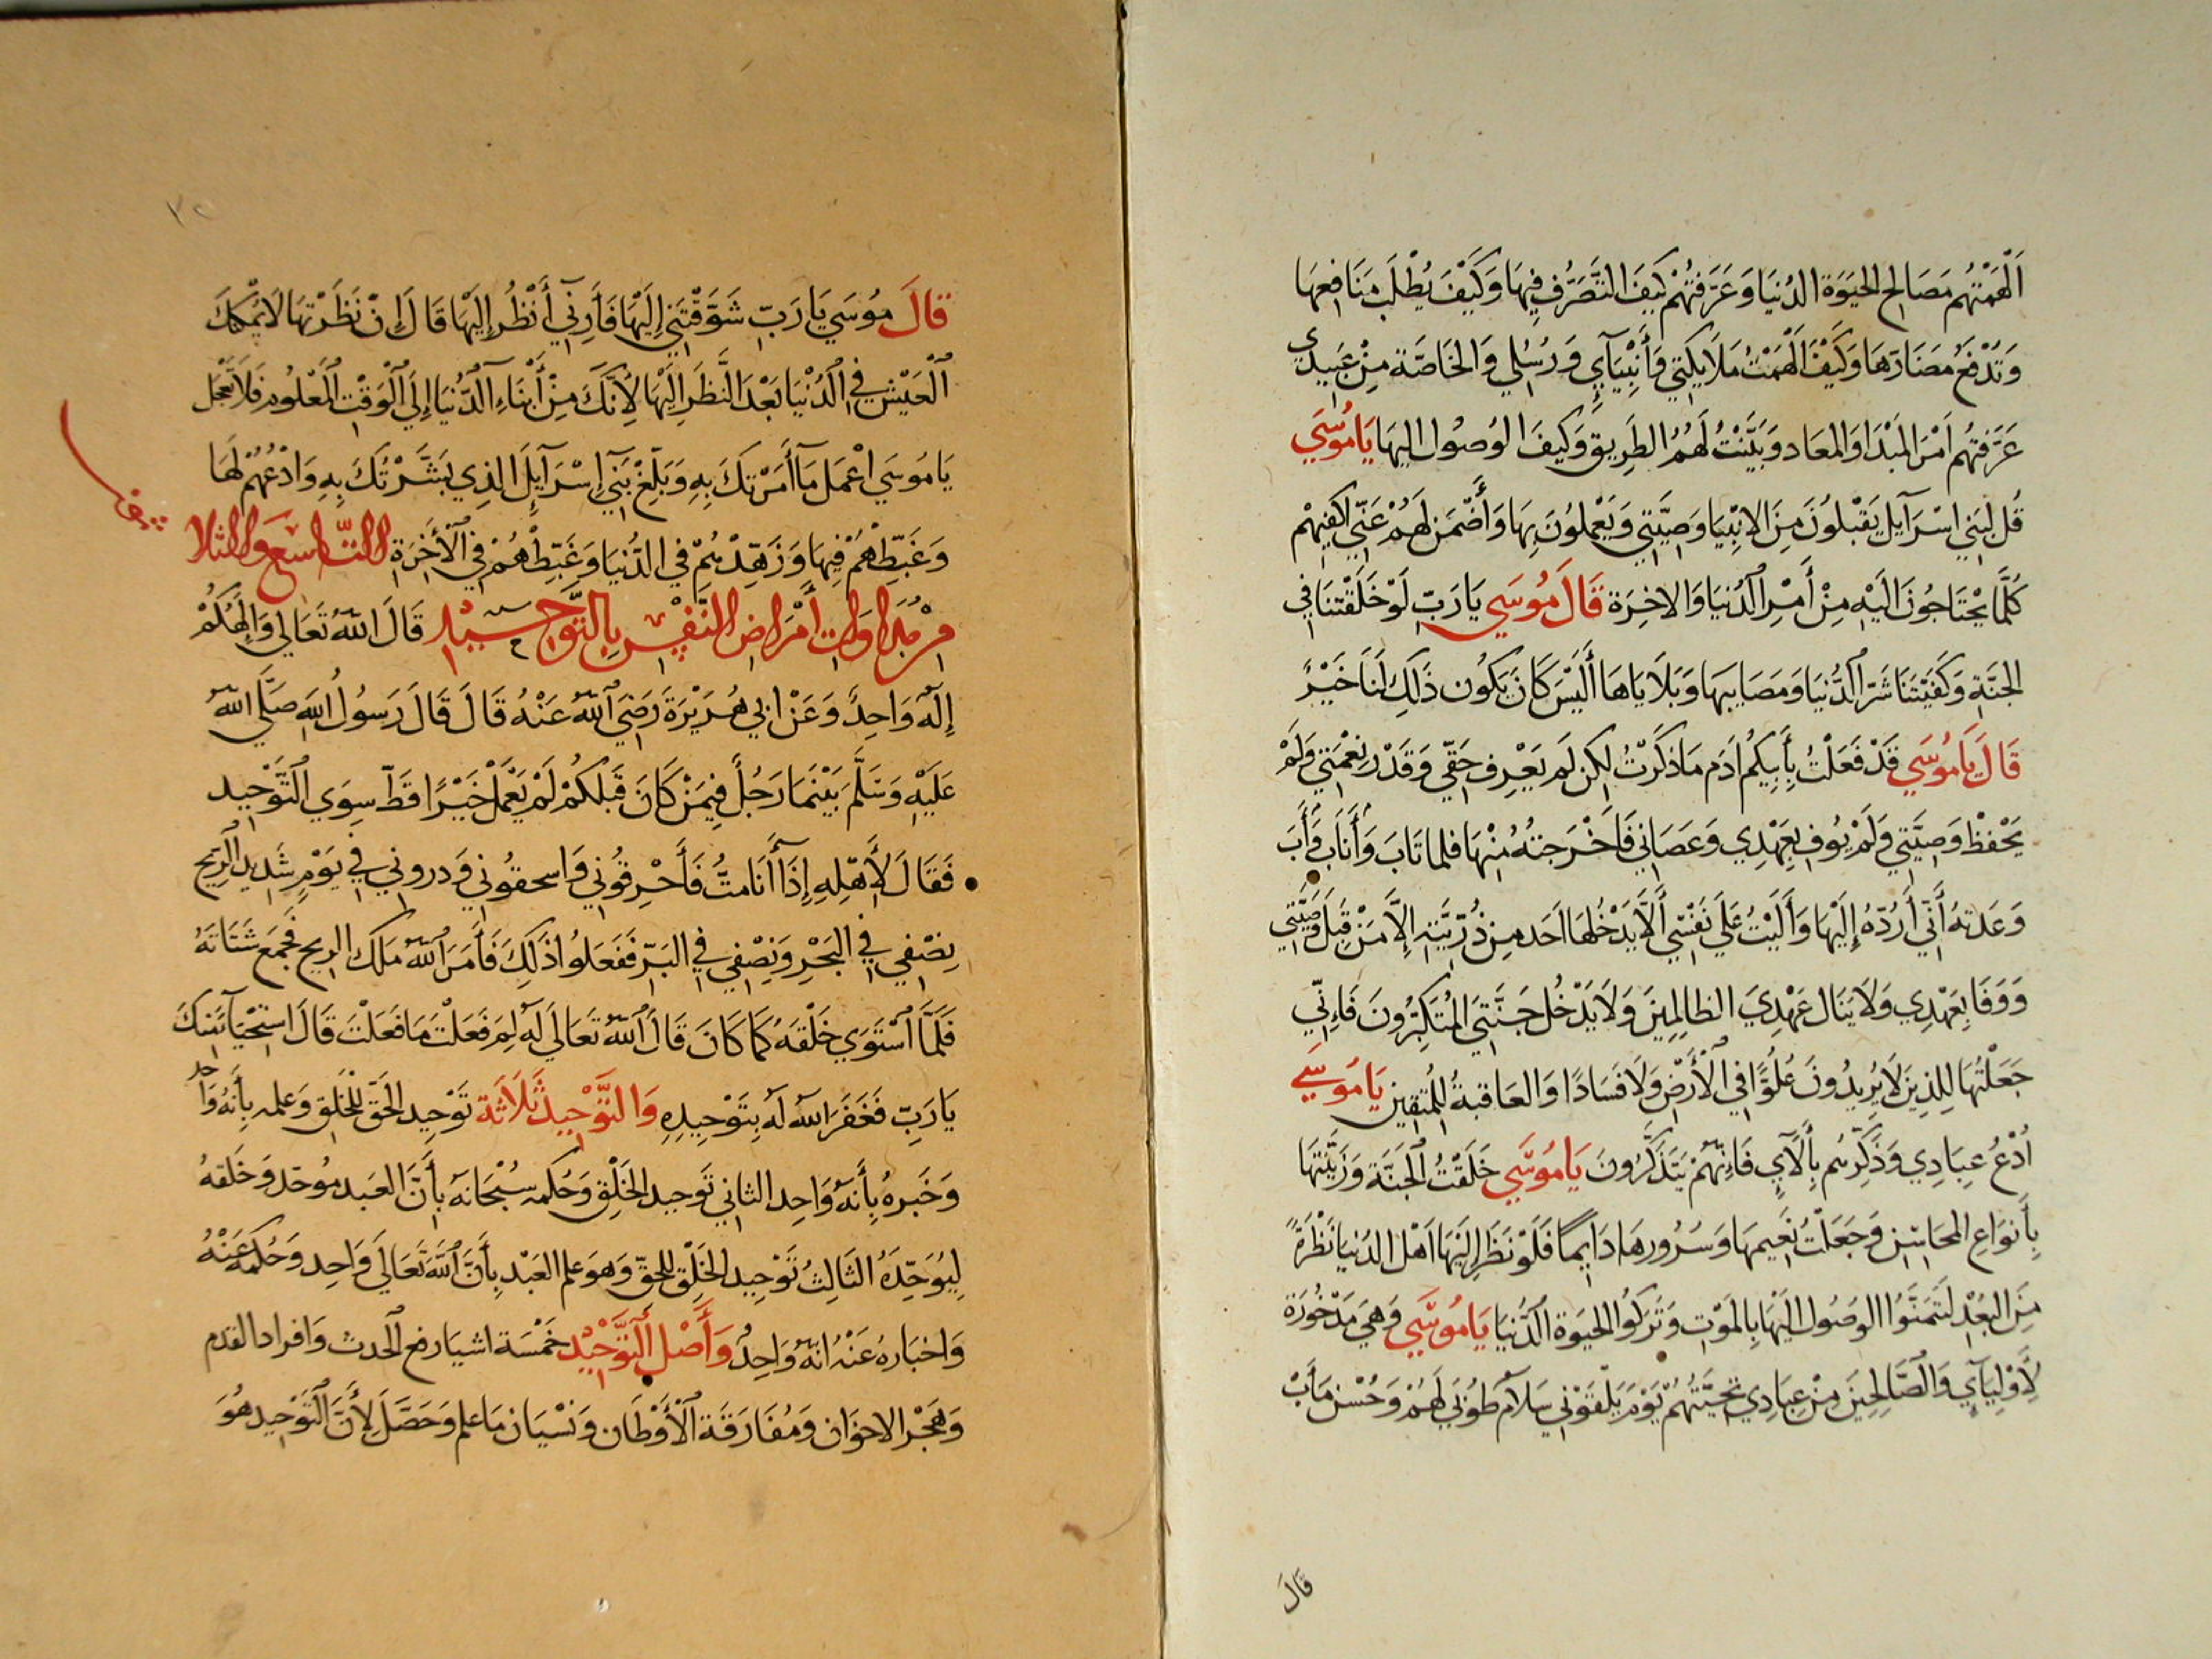 اَلْهَمْتُهُم مَصَالِح الحَيَوة الدُنيَا وَعَرَّفتُهُمْ كَيفَ التَّصَرُّف فِيهَا وَكَيْفَ يُطْلَب مَنَافِعهَا
وَتَدْفَعُ مَضَارَهَا وَكَيْفَ اَلْهَمْتُ مَلَايكَتِي وَأَنْبِيَآيِ وَرُسُلِي وَالخَاصَّة مِنْ عَبِيدِي
عَرَّفتُهُم اَمْرَ المَبْدَا وَالمعَاد وَبَيَّنْتُ لَهُمُ الطَرِيق وَكيفَ الوُصُول اليهَا يَامُوسَي
قُل لِبَنِي اسْرَآيل يَقْبلُونَ مِنَ الانْبِيَا وَصِيَّتِي وَيَعْمِلُونَ بِهَا وَأَضْمَن لَهُمْ عَنِّي اكفِيهُمْ
كُلَّمَا يحْتَاجُونَ الَيْهِ مِنْ أَمْرِ الدُنيَا وَالاخِرَة قَالَ مُوسَي يَا رَبِّ لَوْ خَلَقْتنَا فِي
الجَنَّةِ وَكَفَيْتَنَا شَرَّ الدُّنيَا وَمَصَايبهَا وَبَلَايَاهَا أَلَيْسَ كَانَ يَكُون ذَلِكَ لَنَا خَيْرٌ
قَالَ يَامُوسَي قَدْ فَعَلْتُ بِأَبِيكُم ادَم مَا ذَكَرْتُ لكِن لَم يَعْرِف حَقِّي وَقَدْر نِعْمَتِي وَلَمْ
يَحْفظْ وَصِيَّتِي وَلَمْ يُوفِ بِعَهْدِي وَعَصَانِي فَأَخْرَجتُهُ مِنْهَا فلما تَابَ وَأَنَابَ وَأَبَ
وَعَدتهُ أَنِّي أَرُدّهُ إِلَيْهَا وَأَلَيْتُ عَلَي نَفْسِي أَلَّا يَدْخُلهَا اَحَد مِن ذُرِّيَّتِهِ إِلَّا مَنْ قَبِلَ وَصِيَّتِي
وَوَفَا بِعَهْدِي وَلَا يَنَال عَهْدِيَ الظالِمِينَ وَلَا يَدْخُل جَنَّتِي المُتَكَبِّرُونَ فَاِنِّي
جَعَلْتُهَا لِلذِينَ لَا يُرِيدُونَ عُلُوًّا فِي الْأَرْضِ وَلَا فَسَادًا وَالعَاقِبةُ لِلْمُتقِين يَامُوسَي
اُدْعُ عِبَادِي وَذَكِّرْهُم بِآلَآيِ فَاِنَّهُمْ يَتَذَكَّرُونَ يَامُوسَي خَلَقْتُ الجَنَّة وَزَيَّنْتهَا
بِأَنوَاعِ المحَاسِن وَجَعَلْتُ نَعِيمهَا وَسُرُورهَا دَايمًا فَلَوْ نَظَرَ اِلَيْهَا اَهْل الدُنيا نَظْرَةً
مِنَ البُعْدِ لَتَمَنَّوْا الوصُول الَيْهَا بِالمَوْتِ وَتَرَكُوا الحَيَوة الدُّنْيَا يَامُوسَي وَهِيَ مَدْخُورَة
لِأَوْلِيَآيِ وَالصَّالِحِينَ مِنْ عِبَادِي تَحِيَّتُهُمْ يَوْمَ يَلْقَوْنِي سَلَامٌ طُوْبَي لَهُمْ وَحُسْن مَأَبْ
قَالَ
قَالَ مُوسَي يَا رَبِّ شَوَّقْتَنِي إِلَيْهَا فَأَرِنِي أَنْظُر إِلَيْهَا قَالَ إِنْ نَظَرْتهَا لَا يُمْكِنكَ
الْعَيْش فِي الدُنْيَا بَعْدَ النَّظَرِ الَيْهَا لِأَنَّكَ مِنْ أَبْنَاءِ الدُّنْيَا إِلَي الْوَقْتِ الْمَعْلُوم فَلَا تَعْجَل
يَامُوسَي اعْمَل مَا أَمَرْتكَ بِهِ وَبَلِّغْ بَنِي إِسْرَآيِلَ الذِي بَشَّرْتُكَ بِهِ وَادْعُهُمْ لَهَا
وَغَبِّطْهُمْ فِيهَا وَزَهِّدْهُمْ فِي الدُّنيَا وَغَبِّطْهُمْ فِي الْأَخِرَةِ التّاسِع وَالثلا
مِنْ مُدَاوَاتِ أَمْرَاضِ النَّفْسِ بِالتَّوْحِيْدِ قَالَ اللهُ تَعَالِي وَإِلَهُكُمْ
إِلَهٌ وَاحِدٌ وَعَنْ ابِي هُرَيْرَةَ رَضِيَ اللهُ عَنْهُ قَالَ قَالَ رَسُولُ اللهِ صَلَّي اللهُ
عَلَيْهِ وَسَلَّمَ بَيْنَمَا رَجُلٌ فِيمَنْ كَانَ قَبْلَكُمْ لَمْ يَعْمَلْ خَيْرًا قَطّ سِوَي التَّوْحِيد
فَقَالَ لِأَهْلِهِ إِذَا أَنَا مِتُّ فَأَحْرِقُونِي وَاسحقُونِي وَدرونِي فِي يَوْمٍ شَدِيد الرِّيح
نِصْفِي فِي البَحْرِ وَنِصْفِي فِي البَرِّ فَفَعَلُوا ذَلِكَ فَأَمَرَ اللهُ مَلَك الريح فَجمَعَ شَتَاتَهُ
فَلَمَّا اسْتَوَي خَلْقهُ كَمَا كَانَ قَالَ اللهُ تَعَالَي لَهُ لِمَ فَعَلْتَ مَا فَعَلْتَ قَالَ اسْتِحْيَآءً مِنكَ
يَا رَبِّ فَغَفَرَ اللهُ لَهُ بِتَوْحِيدِهِ وَالتَّوْحِيدُ ثَلَاثَة تَوْحِيد الحَقّ لِلْخَلِقِ وَعلمه بِأَنهُ وَاحد
وَخَبره بِأَنهُ وَاحِد الثانِي تَوحِيد الخَلْق وَحُكمه سُبْحَانَهُ بِأَنَّ العَبد مُوحّد وَخَلقهُ
لِيُوَحِّدَهُ الثَالِثُ تَوْحِيد الخَلْق لِلحَقّ وَهوَ علم العَبْد بِأَنَّ اللهَ تَعَالَي وَاحِد وَحُكمه عَنْهُ
وَاخبَاره عَنْهُ انهُ وَاحِدٌ وَأَصْل التَّوْحِيْد خَمْسَة اشيَا رفع الحدث وَافراد القدم
وَهَجْر الاخوَان وَمُفَارَقَة الْأَوْطَان وَنسْيَان مَا علم وَحصَّلَ لِأَنَّ التَّوْحِيد هُوَ